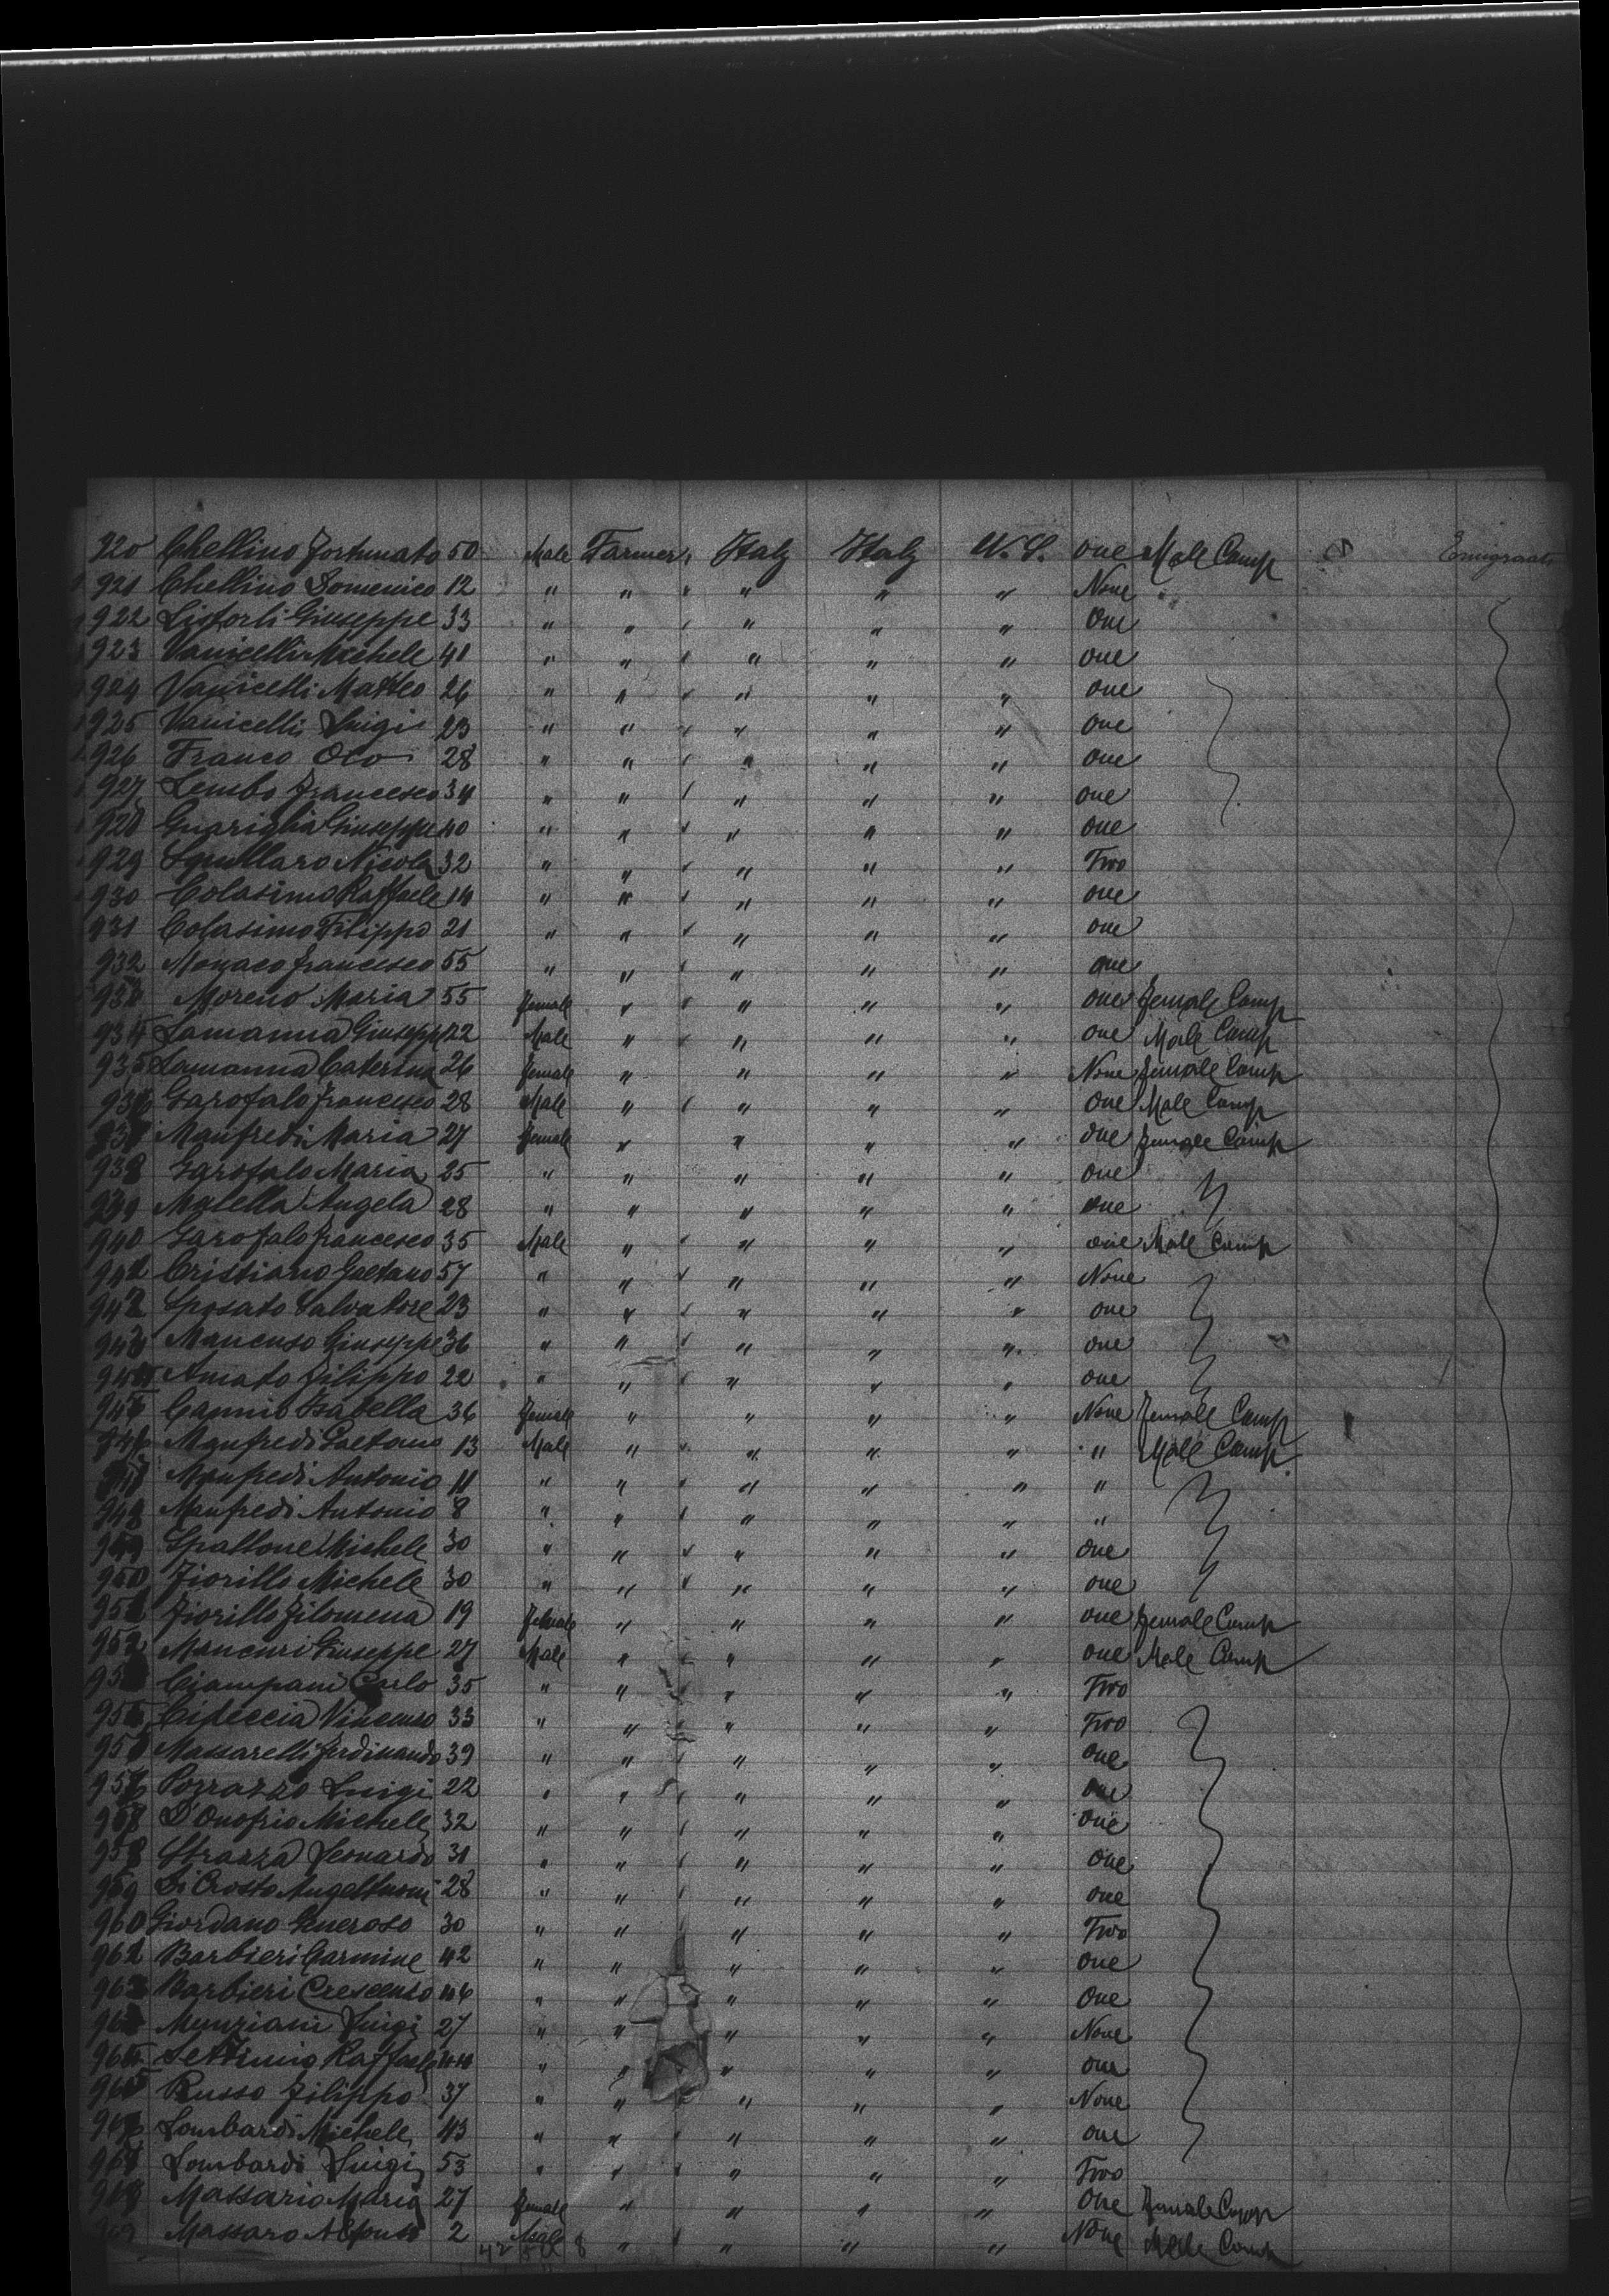 920 Chellino Fortunato 50 Male Farmer Italy Italy U.S. one Male Camp Emigrants
921 Chellino Domenico 12 " " " " " None
922 Listorli Giuseppe 33 " " " " " One
923 Vanicelli Michele 41 " " " " " one
924 Vanicelli Matteo 26 " " " " " one
925 Vanicelli Luigi 23 " " " " " one
926 Franco Oto 28 " " " " " one
927 Lembo Francesco 34 " " " " " one
928 Guariglia Giuseppe 40 " " " " " one
929 Squillaro Nicola 32 " " " " " Two
930 Colasimo Raffaele 14 " " " " " one
931 Colasimo Filippo 21 " " " " " one
932 Monaco Francesco 55 " " " " " one
933 Moreno Maria 55 Female " " " " one Female Camp
934 Lamanna Giuseppe 22 Male " " " " one Male Camp
935 Lamanna Caterina 26 Female " " " " None Female Camp
936 Garofalo Francesco 28 Male " " " " one Male Camp
937 Manfredi Maria 27 Female " " " " one Female Camp
938 Garofalo Maria 25 " " " " " one
939 Molella Angela 28 " " " " " one
940 Garofalo Francesco 35 Male " " " " one Male Camp
941 Cristiano Gaetano 57 " " " " " None
942 Sposato Salvatore 23 " " " " " one
943 Mancuso Giuseppe 36 " " " " " one
944 Amato Filippo 22 " " " " " one
945 Cannio Isabella 36 Female " " " " None Female Camp
946 Manfredi Gaetano 13 Male " " " " " Male Camp
947 Manfredi Antonio 11 " " " " " "
948 Manfredi Antonio 8 " " " " " "
949 Spallone Michele 30 " " " " " one
950 Fiorillo Michele 30 " " " " " one
951 Fiorillo Filomena 19 Female " " " " one Female Camp
952 Mancuri Giuseppe 27 Male " " " " one Male Camp
953 Ciampani Carlo 35 " " " " " Two
954 Vincenso 33 " " " " " Two
955 Massarelli Ferdinando 39 " " " " " one
956 Porrazzo Luigi 22 " " " " " one
957 D'Onofrio Michele 32 " " " " " one
958 Strazza Leonardo 31 " " " " " one
959 Di Crosto 28 " " " " " one
960 Giordano Generoso 30 " " " " " Two
961 Barbieri Carmine 42 " " " " " one
962 Barbieri Crescenso 46 " " " " " one
963 Munziani Luigi 27 " " " " " None
964 Settimio Raffaele 44 " " " " " one
965 Russo Filippo 37 " " " " " None
966 Lombardi Michele 43 " " " " " one
967 Lombardi Luigi 53 " " " " " Two
968 Massario Maria 27 Female " " " " One Female Camp
969 Massaro Alfonso 2 Male " " " " None Male Camp